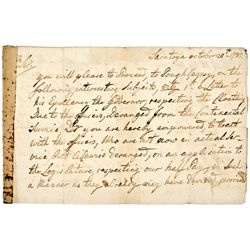 Saratoga october 20th 1781
Sir
you will please to Proceed, to Poughkeepsey on the
following interesting Subjects, viz 1st a Letter to
his Excellency the Governor, respecting the
Due to the officers, deranged from the Continental
Service 2d you are hereby empowered, to treat
with the officers, Who are not now in actual
vice But officers deranged, on an application to
the Legislature, respecting our half Pay in Such
a Manner as they already may have